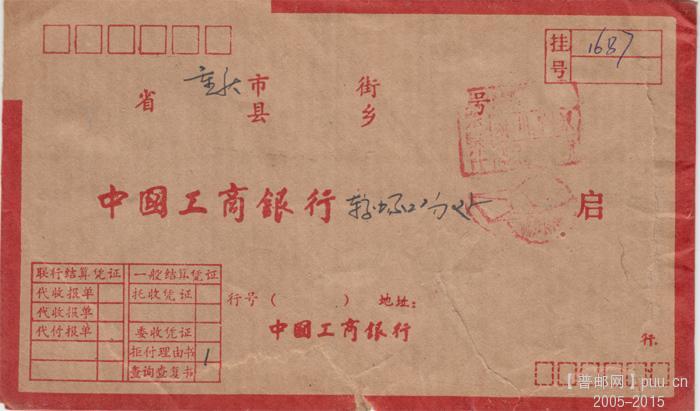 挂号 1687
省 重庆 市县 街乡 号
中國工商銀行 较场口分处 启
联行结算凭证 一般结算凭证
代收报单 托收凭证
代收报单
代付报单 委收凭证
拒付理由书 1
查询查复书
行号（ ） 地址：
中國工商銀行
行
【普邮网】puu.cn
2005-2015